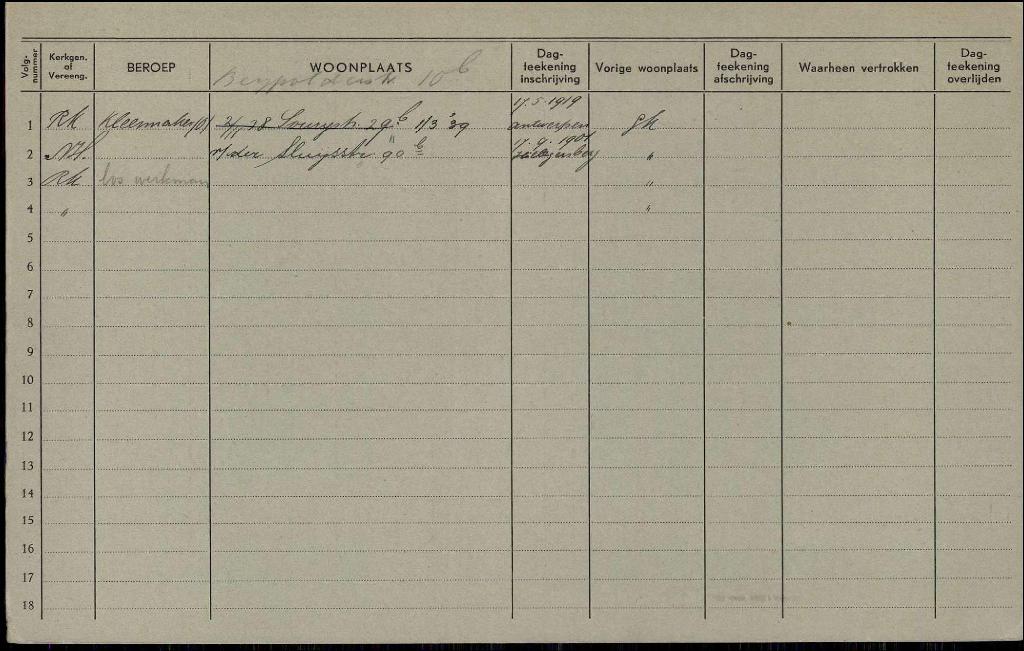 Volg-nummer
Kerkgen. of Vereeng.
BEROEP
WOONPLAATS
Dag-teekening inschrijving
Vorige woonplaats
Dag-teekening afschrijving
Waarheen vertrokken
Dag-teekening overlijden
10 b
17.5.1919
1 RK Kleermaker (0) 29 b 1/3 '39 antwerpen
2 N.H. v/der Sluysstr 90 b "
3 RK los werkman "
4 " "
5
6
7
8
9
10
11
12
13
14
15
16
17
18